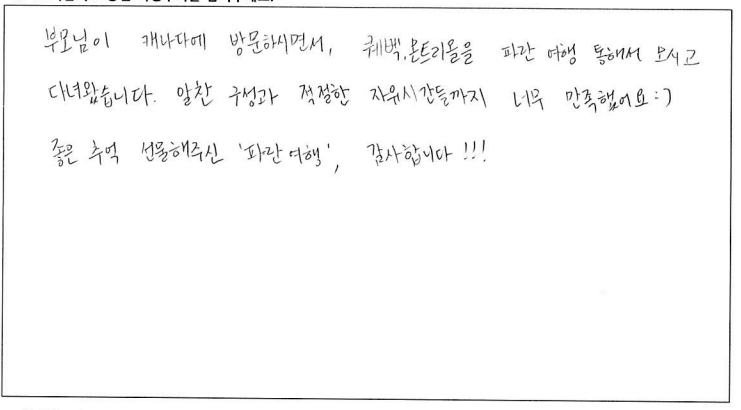 부모님이 캐나다에 방문하시면서, 퀘벡,몬트리올을 파란 여행 통해서 모시고
다녀왔습니다. 알찬 구성과 적절한 자유시간들까지 너무 만족했어요:)
좋은 추억 선물해주신 '파란여행', 감사합니다!!!